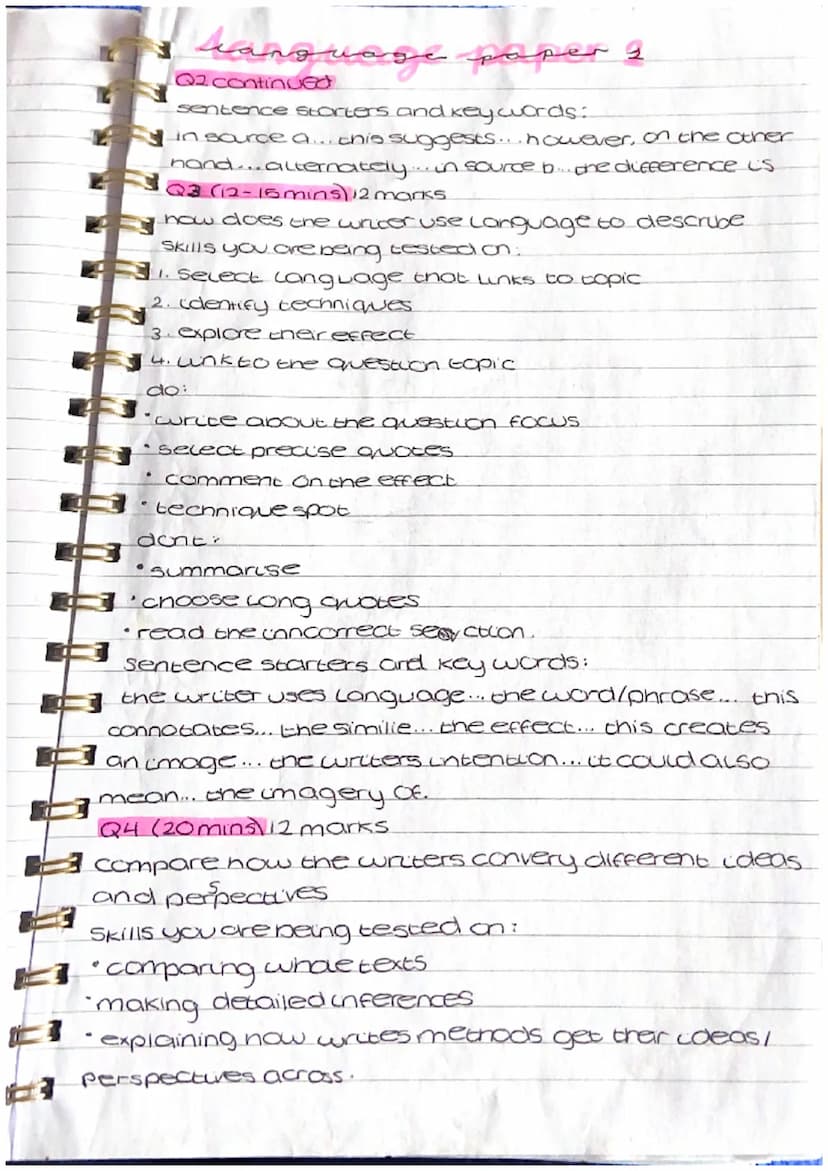 language paper 2
Q2 continued
sentence starters and key words:
in source a... this suggests... however, on the other
hand... alternately... in source b... the difference is
Q3 (12-15 mins) 12 marks
how does the writer use language to describe
skills you are being tested on:
1. select language that links to topic
2. identify techniques
3. explore their effect
4. link to the question topic
do:
• write about the question focus
• select precise quotes
• comment on the effect
• technique spot
dont:
• summarise
• choose long quotes
• read the inncorrect section.
sentence starters and key words:
the writer uses language... the word/phrase... this
connotates... the similie... the effect... this creates
an image... the writers intention... it could also
mean... the imagery of.
Q4 (20 mins) 12 marks
compare how the writers convery different ideas
and perspectives
skills you are being tested on:
• comparing whole texts
• making detailed inferences
• explaining how writes methods get their ideas/
perspectives across.